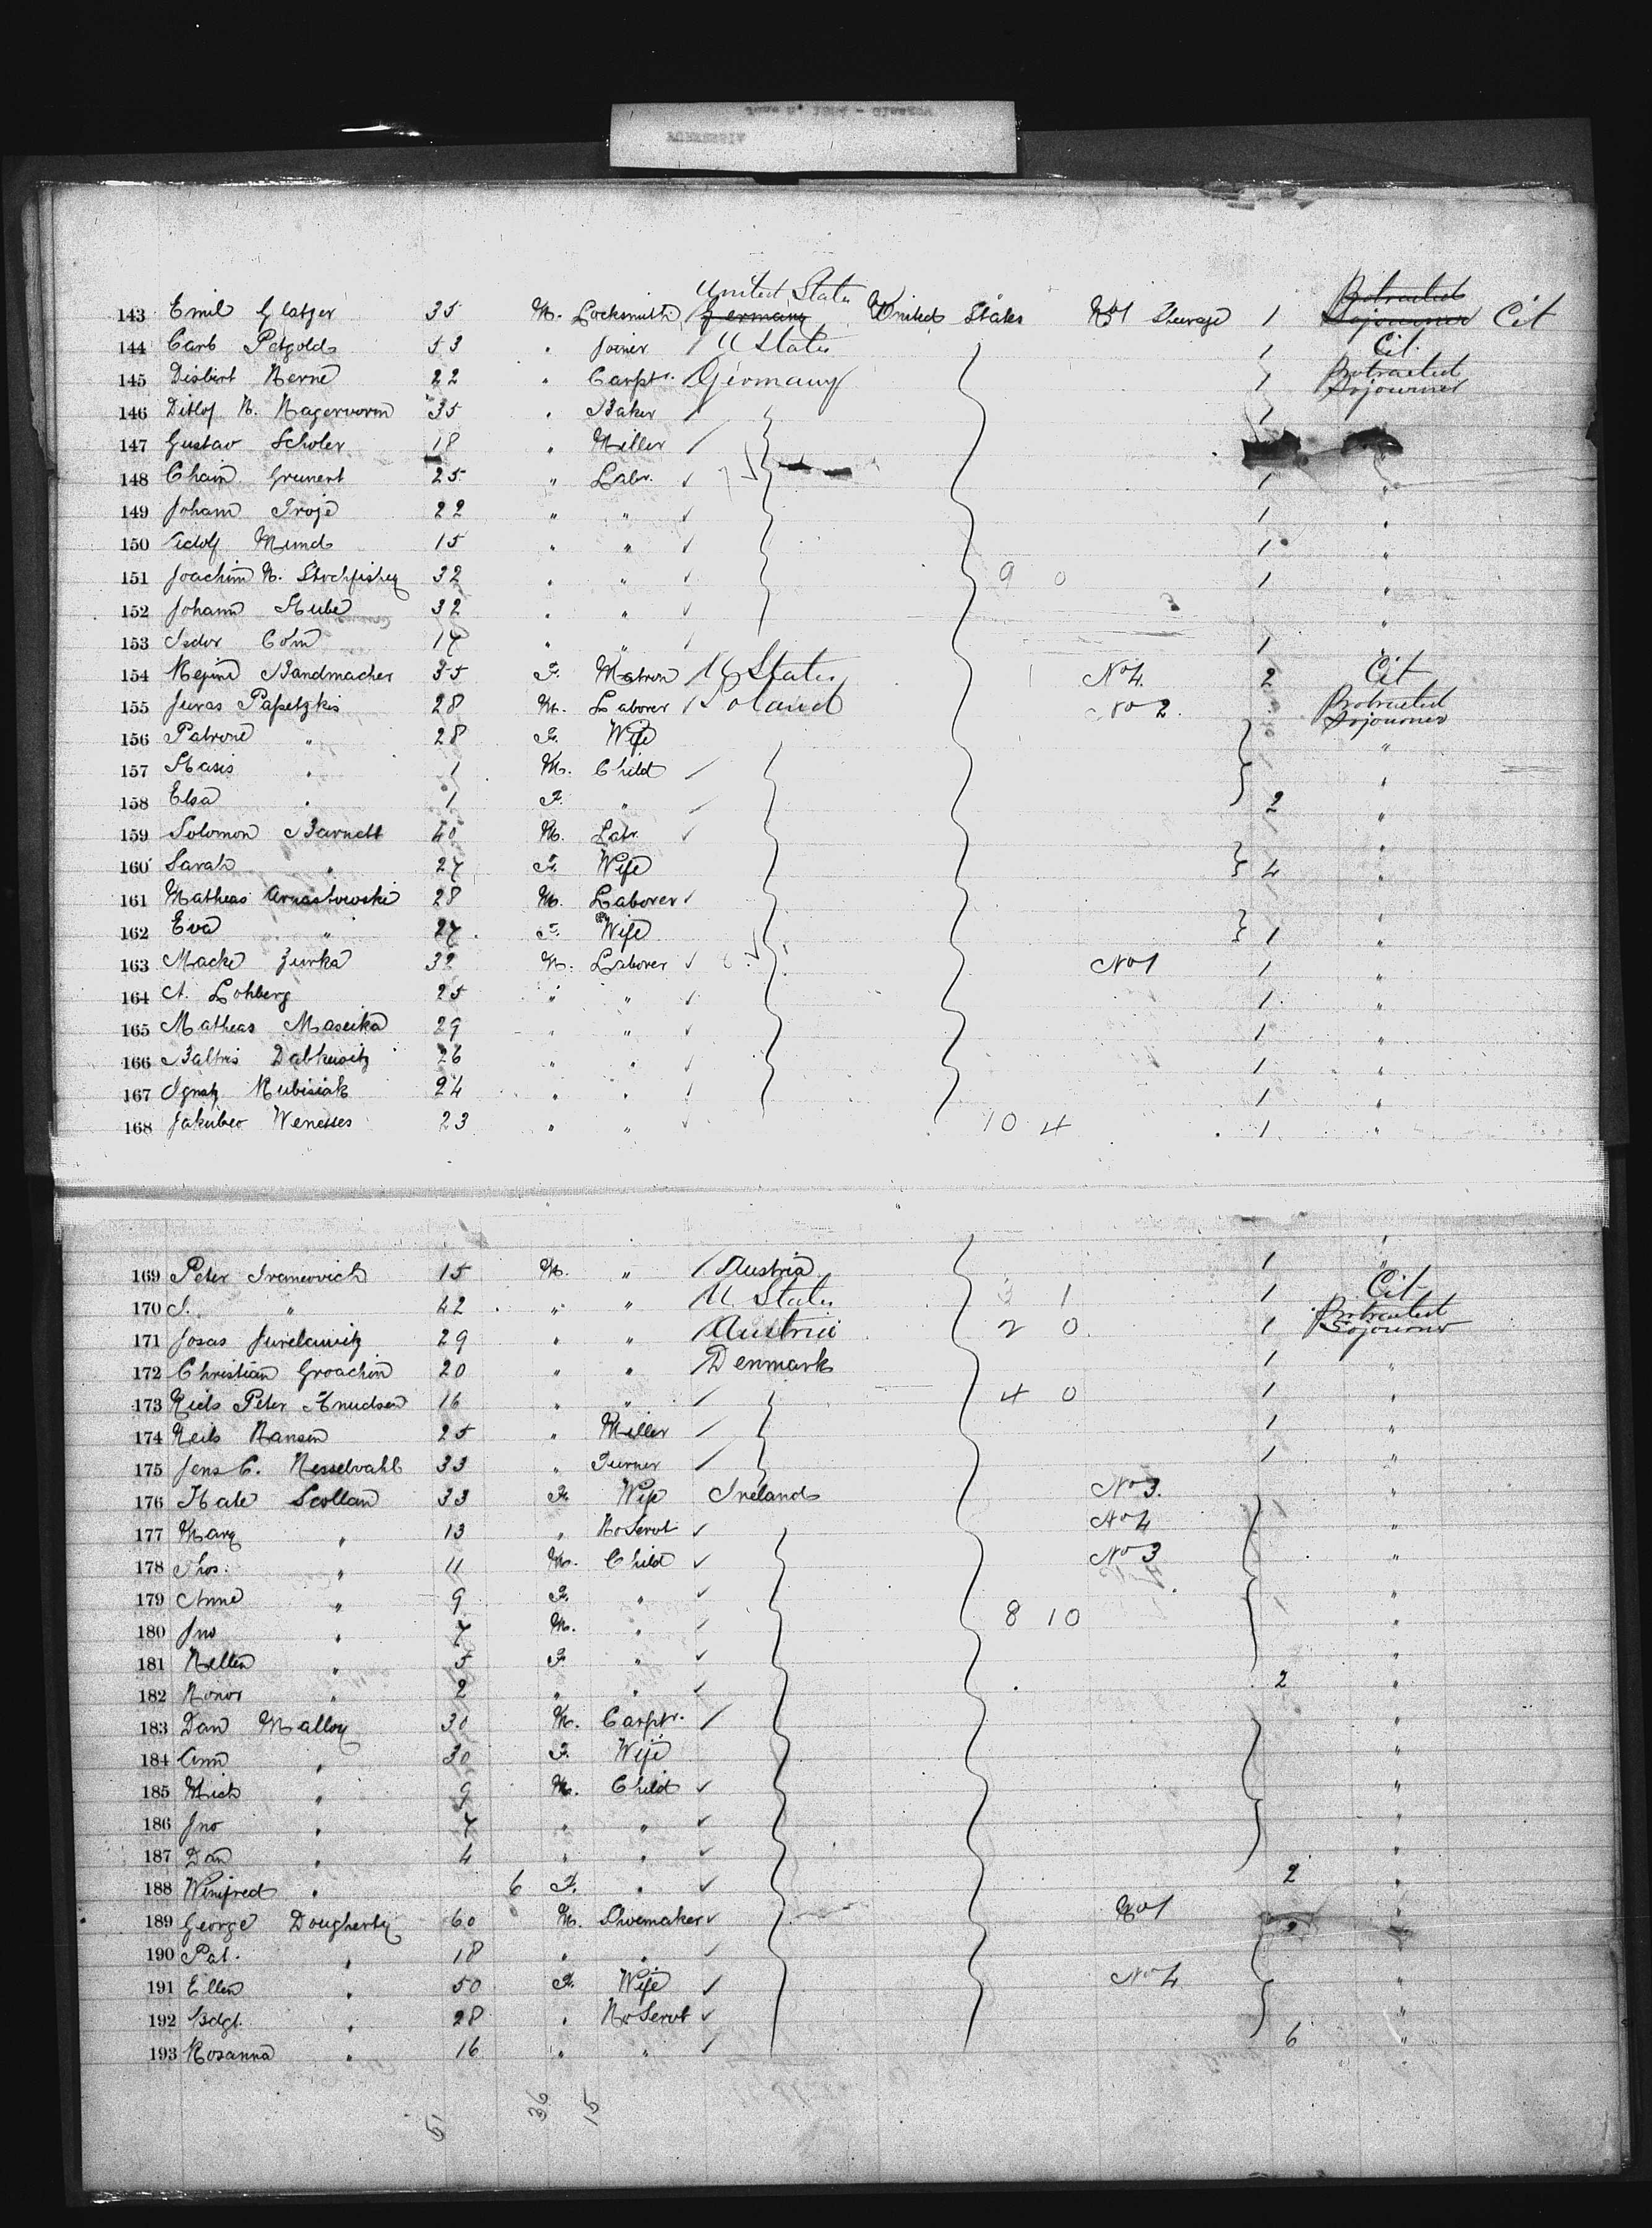 United States
143 Emil Glatzer 35 M. Locksmith Germany United States No 1 Steerage 1 Protracted Sojourner Cit
144 Carl Petzold 53 " Joiner U States 1 Cit.
145 22 " Carptr. Germany 1 Protracted Sojourner
146 35 " Baker 1
147 Gustav Scholer 18 " Miller
148 Grunert 25 " Labr. 1 "
149 Johann Troje 22 " " 1 "
150 Adolf Mund 15 " " 1 "
151 Joachim 32 " " 9 0 1 "
152 Johann 32 " " "
153 Isidor Cohn 17 " " 1
154 Regine Bandmacher 35 F. Matron U States 1 No 4. 2 Cit
155 28 M. Laborer Poland No 2. Protracted Sojourner
156 Patrone " 28 F. Wife "
157 Stasis " 1 M. Child "
158 Elsa " 1 F. " 2 "
159 Solomon Barnett 40 M. Labr. "
160 Sarah " 27 F. Wife 4 "
161 Matheas Arnastowski 28 M. Laborer "
162 Eva " 27 F. Wife 1 "
163 Macke Zurka 32 M. Laborer No 1 1 "
164 A. Lohberg 25 " " 1 "
165 Matheas Maseika 29 " " 1 "
166 Baltris Dabkewitz 26 " " 1 "
167 Ignatz Kubisiak 24 " " 1 "
168 Wenesses 23 " " 10 4 1 "
169 Peter Ivancovich 15 M. " Austria 1 "
170 J. " 42 " " U States 3 1 1 Cit.
171 Josas Jurelawitz 29 " " Austria 2 0 1 Protracted Sojourner
172 Christian Groachin 20 " " Denmark 1 "
173 Niels Peter Knudsen 16 " " 4 0 1 "
174 Neils Hansen 25 " Miller 1 "
175 Jens C. Nesselvahl 33 " Turner 1 "
176 Kate Scollan 33 F. Wife Ireland No 3. "
177 Mary " 13 " Ho Servt No 4 "
178 Thos. " 11 M. Child No 3 "
179 Anne " 9 F. " "
180 Jno " 7 M. " 8 10 "
181 Nellie " 5 F. " "
182 Honor " 2 " " 2 "
183 Dan Malloy 30 M. Carptr. "
184 Ann " 30 F. Wife "
185 Mich " 9 M. Child "
186 Jno " 7 " " "
187 Dan " 4 " " "
188 Winifred " 6 F. " 2 "
189 George Dougherty 60 M. Shoemaker No 1 2 "
190 Pat. " 18 " "
191 Ellen " 50 F. Wife No 4 "
192 Bdgt. " 28 " Ho Servt "
193 Rosanna " 16 " " 6 "
51 36 15